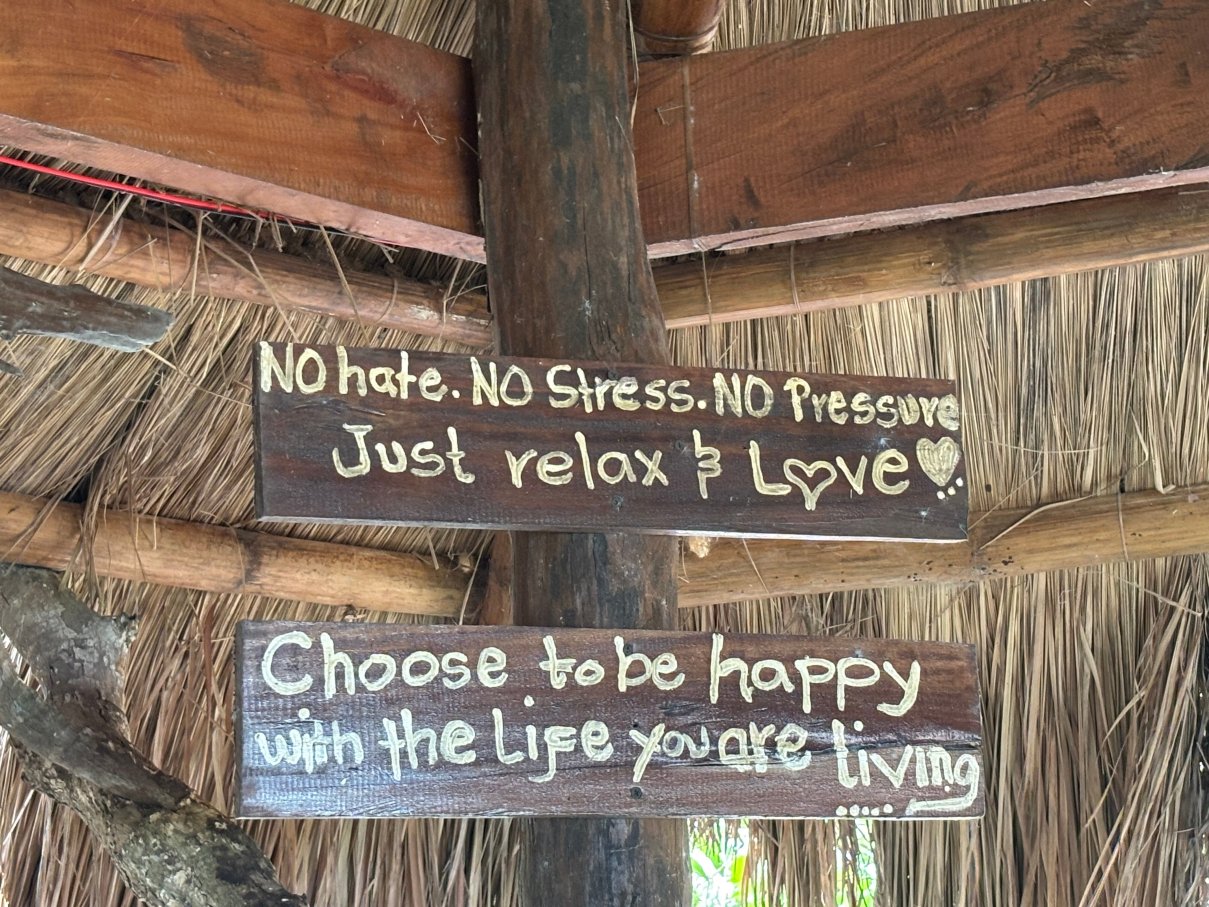 NO hate. NO Stress. NO Pressure
Just relax & Love
Choose to be happy
with the Life you are living
.....